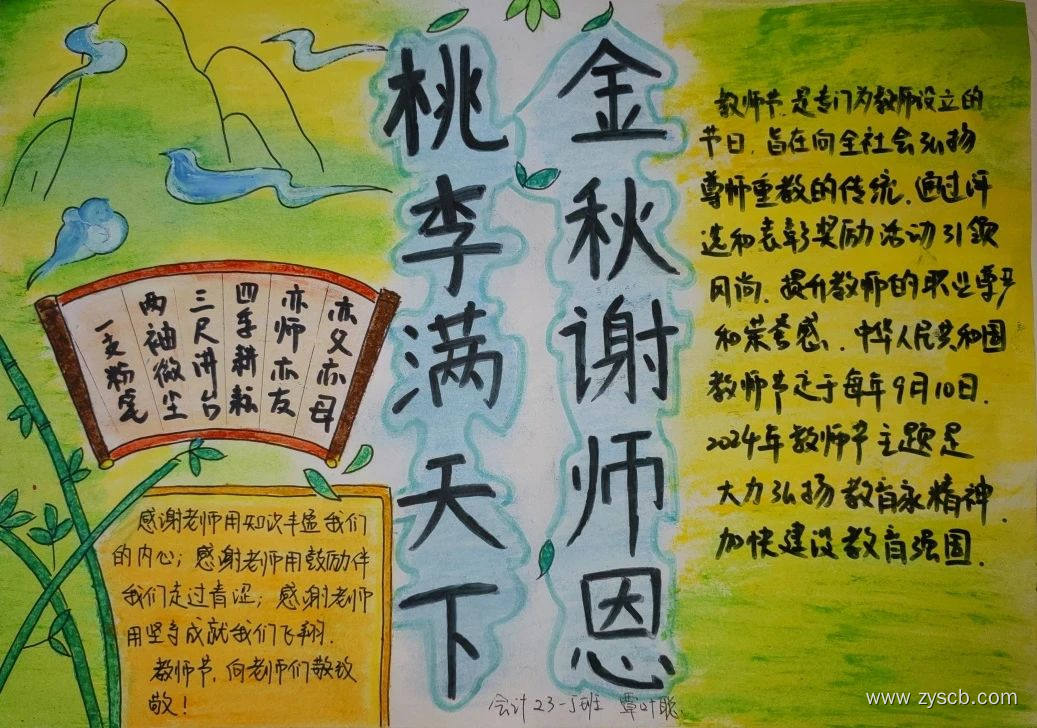 金秋谢师恩
桃李满天下
教师节,是专门为教师设立的
节日,旨在向全社会弘扬
尊师重教的传统,通过评
选和表彰奖励活动引领
风尚,提升教师的职业尊严
和荣誉感、中华人民共和国
教师节定于每年9月10日.
2024年教师节主题是
大力弘扬教育家精神,
加快建设教育强国.
亦父亦母
亦师亦友
四季耕耘
三尺讲台
两袖微尘
一支粉笔
感谢老师用知识丰盈我们
的内心;感谢老师用鼓励伴
我们走过青涩;感谢老师
用坚守成就我们飞翔.
教师节,向老师们敬致
敬!
会计23-5班 覃叶聪
www.zyscb.com